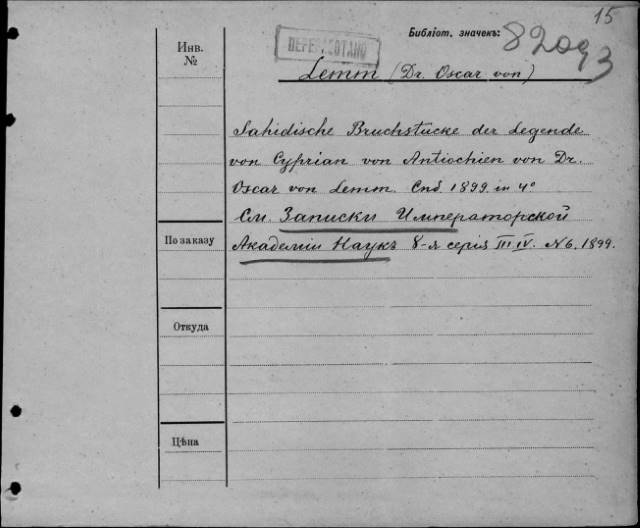 15
Библіот. значекъ:
Инв.
№
ПЕРЕРАБОТАНО
Lemm (Dr. Oscar von)
Sahidische Bruchstücke der Legende
von Cyprian von Antiochien von Dr.
Oscar von Lemm. Спб. 1899. in 4°
См. Записки Императорской
Академіи Наукъ 8-я серія III IV. N 6. 1899.
По заказу
Откуда
Цѣна